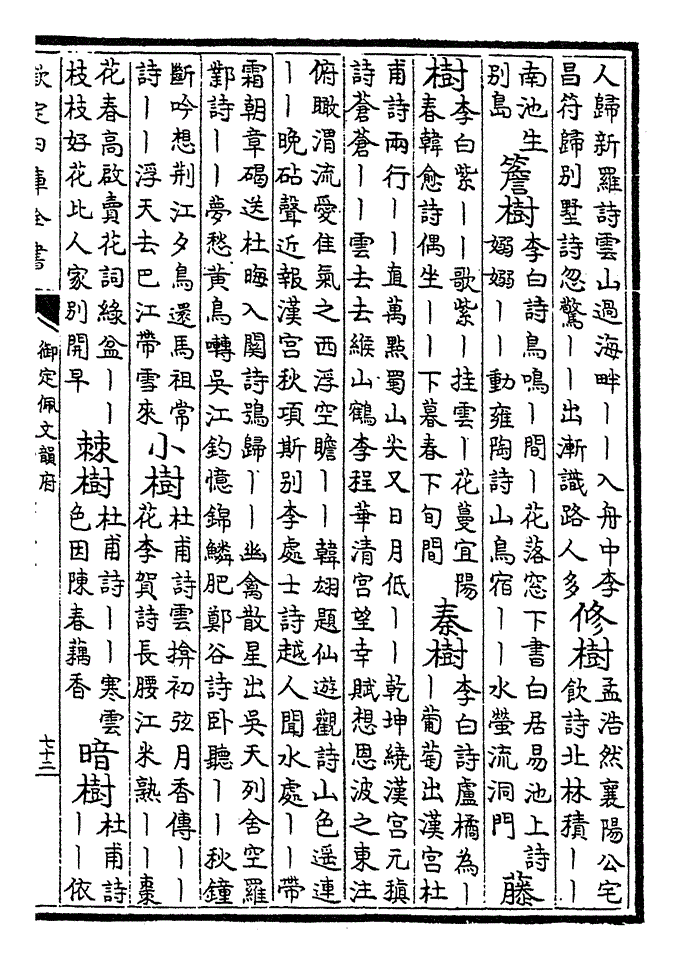 人歸新羅詩雲山過海畔丨丨入舟中李
昌符歸別墅詩忽驚丨丨出漸識路人多
修樹
孟浩然襄陽公宅
飲詩北林積丨丨
南池生
別島
簷樹
李白詩鳥鳴丨間丨花落窓下書白居易池上詩
嫋嫋丨丨動雍陶詩山鳥宿丨丨水螢流洞門
藤
樹
李白紫丨丨歌紫丨挂雲丨花蔓宜陽
春韓愈詩偶坐丨丨下暮春下旬間
秦樹
李白詩盧橘為丨
丨葡萄出漢宮杜
甫詩兩行丨丨直萬點蜀山尖又日月低丨丨乾坤繞漢宮元稹
詩蒼蒼丨丨雲去去緱山鶴李程華清宮望幸賦想恩波之東注
俯瞰渭流愛佳氣之西浮空瞻丨丨韓翃題仙遊觀詩山色遥連
丨丨晚砧聲近報漢宮秋項斯別李處士詩越人聞水處丨丨帶
霜朝章碣送杜晦入關詩鴉歸丨丨幽禽散星出吳天列舍空羅
鄴詩丨丨夢愁黄鳥囀吳江釣憶錦鱗肥鄭谷詩卧聽丨丨秋鐘
斷吟想荆江夕鳥還馬祖常
詩丨丨浮天去巴江帶雪來
小樹
杜甫詩雲揜初弦月香傳丨丨
花李賀詩長腰江米熟丨丨棗
花春高啟賣花詞綠盆丨丨
枝枝好花比人家別開早
棘樹
杜甫詩丨丨寒雲
色因陳春藕香
暗樹
杜甫詩
丨丨依
欽定四庫全書
御定佩文韻府
七十三